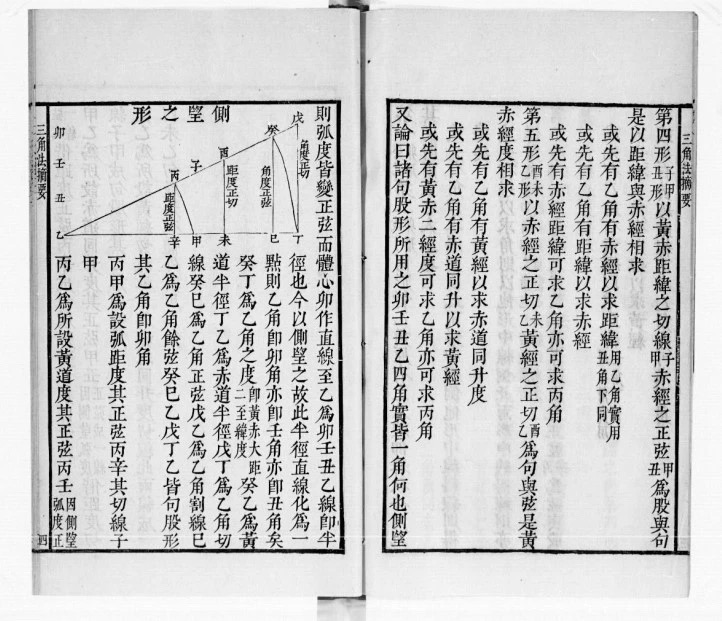 三角法摘要
第四形子甲丑形以黃赤距緯之切線子甲赤經之正弦甲丑爲股與句
是以距緯與赤經相求
或先有乙角有赤經以求距緯用乙角實用丑角下同
或先有乙角有距緯以求赤經
或先有赤經距緯可求乙角亦可求丙角
第五形酉未乙形以赤經之正切未乙黃經之正切酉乙爲句與弦是黃
赤經度相求
或先有乙角有黃經以求赤道同升度
或先有乙角有赤道同升以求黃經
或先有黃赤二經度可求乙角亦可求丙角
又論曰諸句股形所用之卯壬丑乙四角實皆一角何也側望
則弧度皆變正弦而體心卯作直線至乙爲卯壬丑乙線卽半
徑也今以側望之故此半徑直線化爲一
㸃則乙角卽卯角亦卽壬角亦卽丑角矣
癸丁爲乙角之度卽黃赤大距二至緯度癸乙爲黃
道半徑丁乙爲赤道半徑戊丁爲乙角切
線癸巳爲乙角正弦戊乙爲乙角割線巳
乙爲乙角餘弦癸巳乙戊丁乙皆句股形
其乙角卽卯角
丙甲爲設弧距度其正弦丙辛其切線子
甲
丙乙爲所設黃道度其正弦丙壬因側望弧度正
側
望
之
形
戊
角度正切
癸
角度正弦
酉
距度正切
子
丙
距度正弦
丁
巳
未
甲
辛
卯
壬
丑
乙
三角法摘要
四